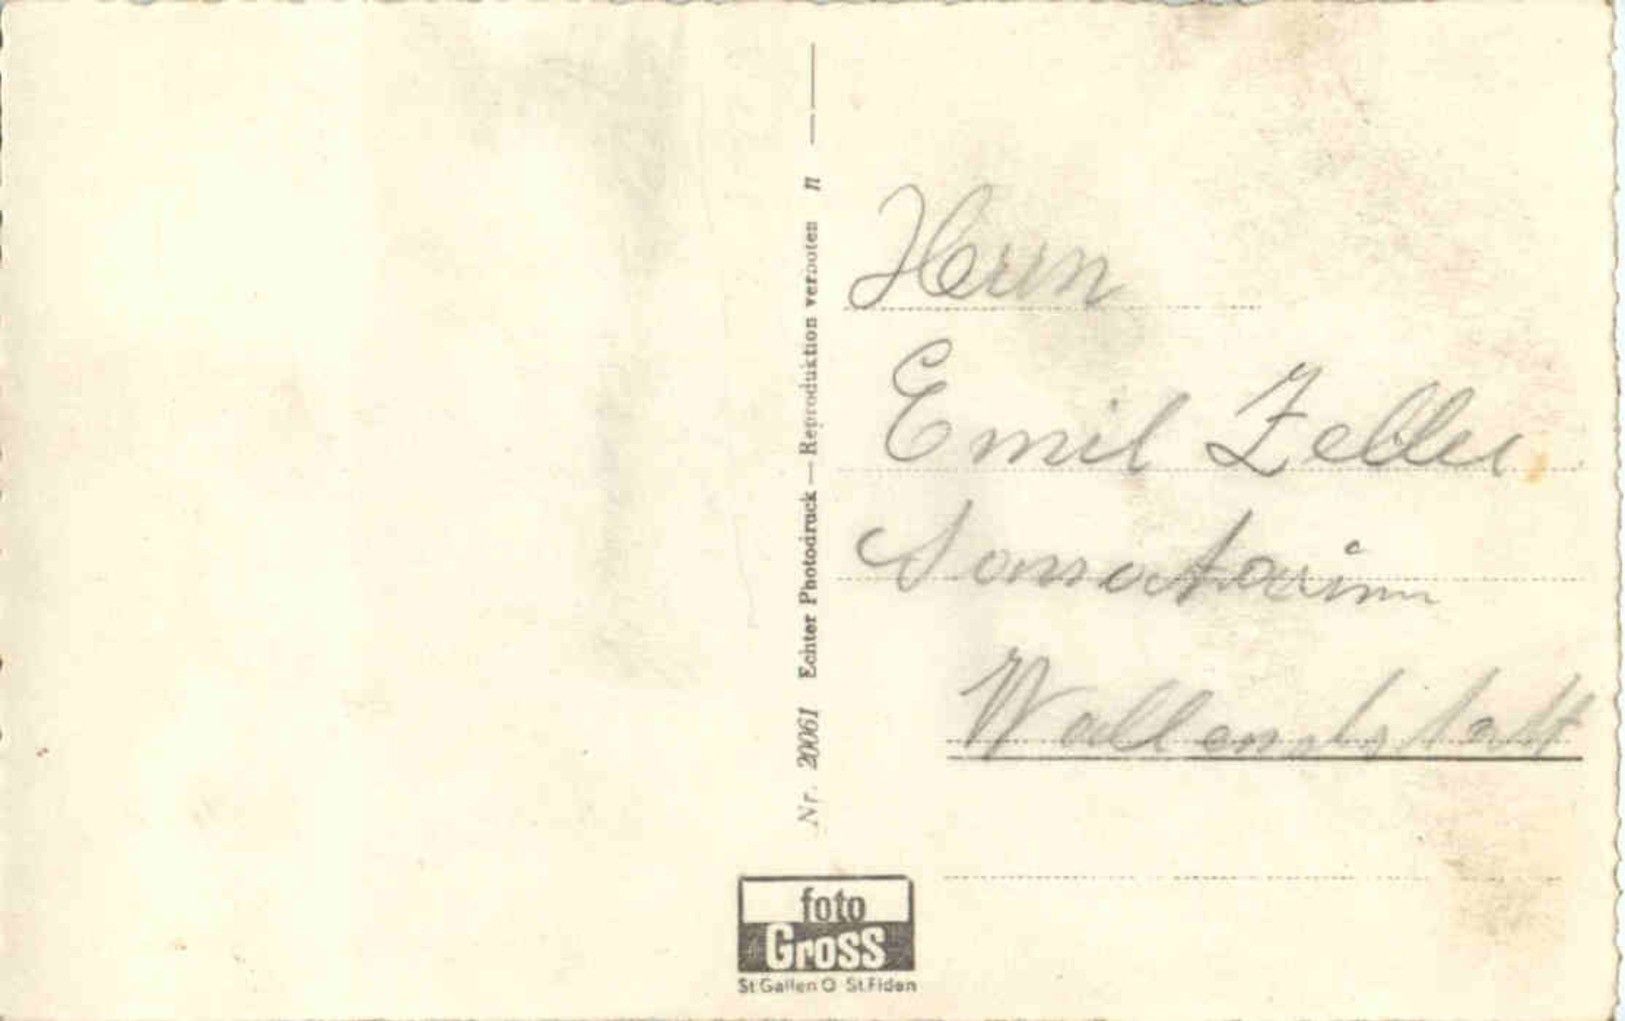 Nr. 20061 Echter Photodruck — Reproduktion verboten n
Herrn
Emil Zeller
Sanatorium
Wallenstatt
foto
Gross
St Gallen O St. Fiden